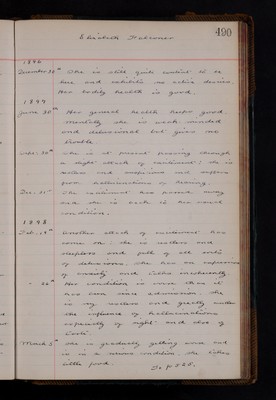 Elizabeth Falconer
490
1896
December 30th She is still quite content to be
here and exhibits no active desires.
Her bodily health is good.
1897
June 30th Her general health keeps good.
Mentally she is weak minded
and delusional but gives no
trouble
She is at present passing through
a slight attack of excitement. She is
restless and suspicious and suffers
from hallucinations of hearing.
Dec. 31st The excitement has passed away
and she is back in her usual
condition.
1898
Feb. 19th Another attack of excitement has
come on. She is restless and
sleepless and full of all sorts
of delusions. She has an expression
of anxiety and talks incessantly
" 26th Her condition is worse than it
has been since admission. She
is very restless and greatly under
the influence of hallucinations
especially of sight and also of
March 5th She is gradually getting worse and
is in a serious condition. She takes
little food.
To p. 525.